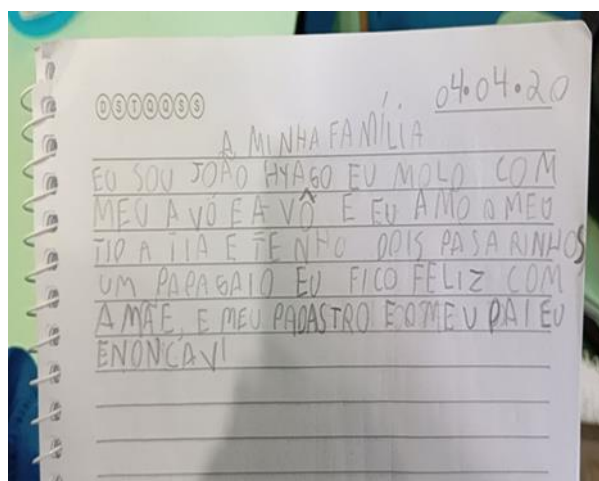 DSTQQSS
04.04.20
A MINHA FAMÍLIA
EU SOU JOÃO HYAGO EU MOLO COM
MEU AVÓ E A VÔ E EU AMO O MEU
TIO A TIA E TENHO DOIS PASARINHOS
UM PAPAGAIO EU FICO FELIZ COM
A MÃE, E MEU PADASTRO E O MEU PAI EU
ENONCAVI